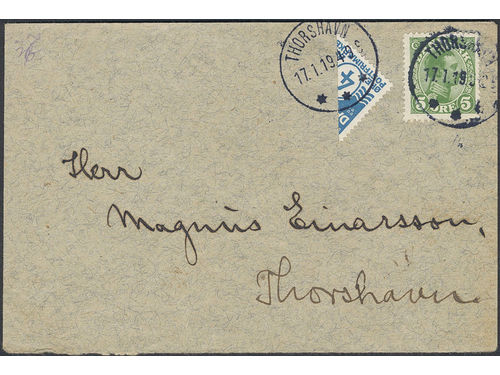 THORSHAVN
17.1.19
4
THORSHAVN
17.1.19
5 ØRE 5
Herr
Magnus Einarsson,
Thorshavn.